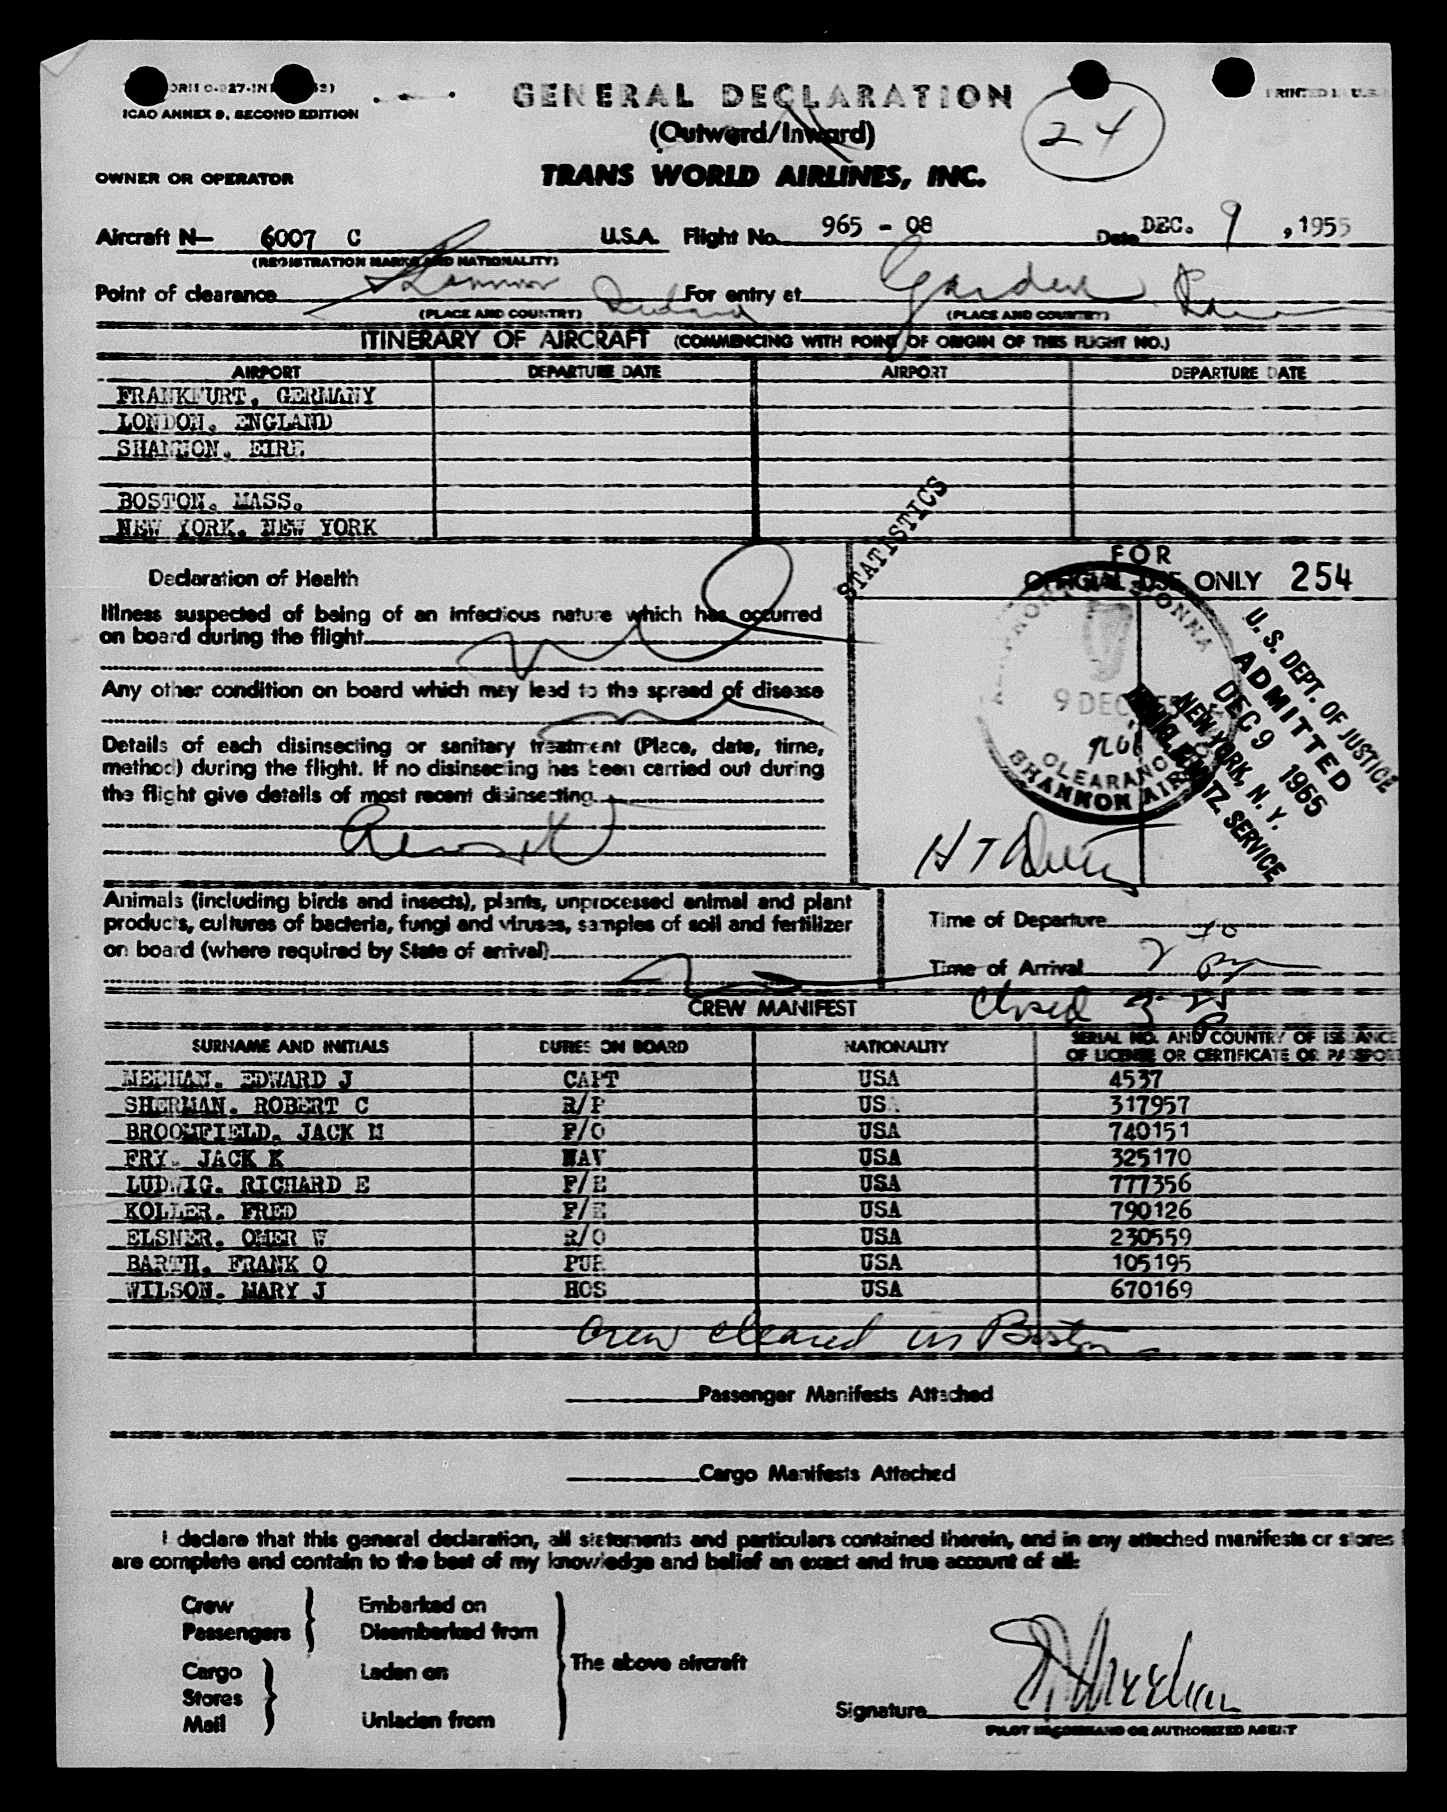 ICAO ANNEX 9, SECOND EDITION
GENERAL DECLARATION
(Outward/Inward)
24
TRANS WORLD AIRLINES, INC.
OWNER OR OPERATOR
Aircraft N— 6007 C U.S.A. Flight No. 965 - 08 Date DEC. 9, 1955
(REGISTRATION MARKS AND NATIONALITY)
Point of clearance Shannon Ireland For entry at Garden
(PLACE AND COUNTRY) (PLACE AND COUNTRY)
ITINERARY OF AIRCRAFT (COMMENCING WITH POINT OF ORIGIN OF THIS FLIGHT NO.)
AIRPORT DEPARTURE DATE AIRPORT DEPARTURE DATE
FRANKFURT, GERMANY
LONDON, ENGLAND
SHANNON, EIRE
BOSTON, MASS.
NEW YORK, NEW YORK
STATISTICS
FOR
OFFICIAL USE ONLY 254
Declaration of Health
Illness suspected of being of an infectious nature which has occurred
on board during the flight
Any other condition on board which may lead to the spread of disease
Details of each disinsecting or sanitary treatment (Place, date, time,
method) during the flight. If no disinsecting has been carried out during
the flight give details of most recent disinsecting
9 DEC
CLEARANCE
SHANNON AIR
U. S. DEPT. OF JUSTICE
ADMITTED
DEC 9 1965
NEW YORK, N. Y.
IMMIG. & NATZ. SERVICE
Animals (including birds and insects), plants, unprocessed animal and plant
products, cultures of bacteria, fungi and viruses, samples of soil and fertilizer
on board (where required by State of arrival)
Time of Departure
Time of Arrival
Closed
CREW MANIFEST
SURNAME AND INITIALS DUTIES ON BOARD NATIONALITY SERIAL NO. AND COUNTRY OF ISSUANCE
OF LICENSE OR CERTIFICATE OR PASSPORT
MEEHAN, EDWARD J CAPT USA 4537
SHERMAN, ROBERT C R/P US 317957
BROOMFIELD, JACK M F/O USA 740151
FRY, JACK K NAV USA 325170
LUDWIG, RICHARD E F/E USA 777356
KOLLER, FRED F/E USA 790126
ELSNER, OMER W R/O USA 230559
BARTH, FRANK O PUR USA 105195
WILSON, MARY J HOS USA 670169
Crew cleared in Boston
Passenger Manifests Attached
Cargo Manifests Attached
I declare that this general declaration, all statements and particulars contained therein, and in any attached manifests or stores
are complete and contain to the best of my knowledge and belief an exact and true account of all:
Crew Embarked on
Passengers Disembarked from
The above aircraft
Cargo Laden on
Stores
Mail Unladen from
Signature E J Meehan
PILOT IN COMMAND OR AUTHORIZED AGENT